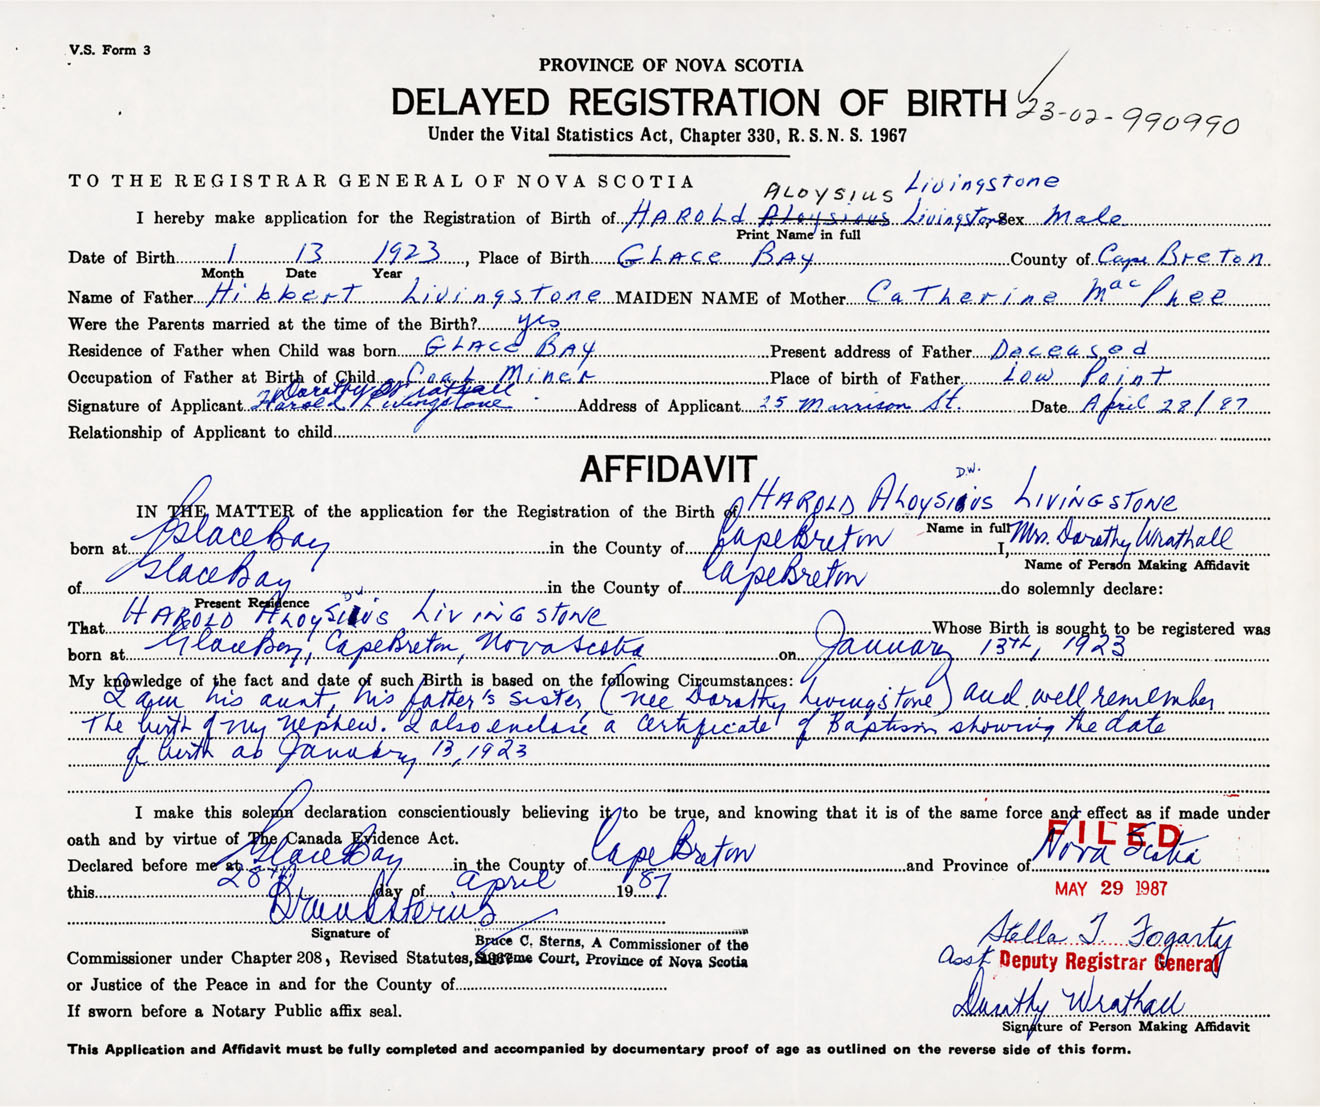 V.S. Form 3
PROVINCE OF NOVA SCOTIA
DELAYED REGISTRATION OF BIRTH 23-02-990990
Under the Vital Statistics Act, Chapter 330, R.S.N.S. 1967
TO THE REGISTRAR GENERAL OF NOVA SCOTIA
ALOYSIUS Livingstone
I hereby make application for the Registration of Birth of HAROLD Aloysious Livingstone Sex Male
Print Name in full
Date of Birth 1 13 1923, Place of Birth GLACE BAY County of Cape Breton
Month Date Year
Name of Father Hibbert Livingstone MAIDEN NAME of Mother Catherine MacPhee
Were the Parents married at the time of the Birth? yes
Residence of Father when Child was born GLACE BAY Present address of Father Deceased
Occupation of Father at Birth of Child Coal Miner Place of birth of Father Low Point
Dorothy Wrathall
Signature of Applicant Harold Livingstone Address of Applicant 25 Morrison St. Date April 28/87
Relationship of Applicant to child
AFFIDAVIT
D.W.
IN THE MATTER of the application for the Registration of the Birth of HAROLD ALOYSIUS LIVINGSTONE
Name in full
born at Glace Bay in the County of Cape Breton I, Mrs. Dorothy Wrathall
Name of Person Making Affidavit
of Glace Bay in the County of Cape Breton do solemnly declare:
Present Residence D.W.
That HAROLD ALOYSIUS LIVINGSTONE Whose Birth is sought to be registered was
born at Glace Bay, Cape Breton, Nova Scotia on January 13th, 1923
My knowledge of the fact and date of such Birth is based on the following Circumstances:
I am his aunt, his father's sister, (nee Dorothy Livingstone) and well remember
the birth of my nephew. I also enclose a Certificate of Baptism showing the date
of birth as January 13, 1923
I make this solemn declaration conscientiously believing it to be true, and knowing that it is of the same force and effect as if made under
oath and by virtue of The Canada Evidence Act.
FILED
Declared before me at Glace Bay in the County of Cape Breton and Province of Nova Scotia
this 28th day of April 1987
MAY 29 1987
Signature of
Bruce C. Sterns, A Commissioner of the
Stella T. Fogarty
Commissioner under Chapter 208, Revised Statutes, 1967
Supreme Court, Province of Nova Scotia
Asst Deputy Registrar General
or Justice of the Peace in and for the County of
Dorothy Wrathall
If sworn before a Notary Public affix seal.
Signature of Person Making Affidavit
This Application and Affidavit must be fully completed and accompanied by documentary proof of age as outlined on the reverse side of this form.